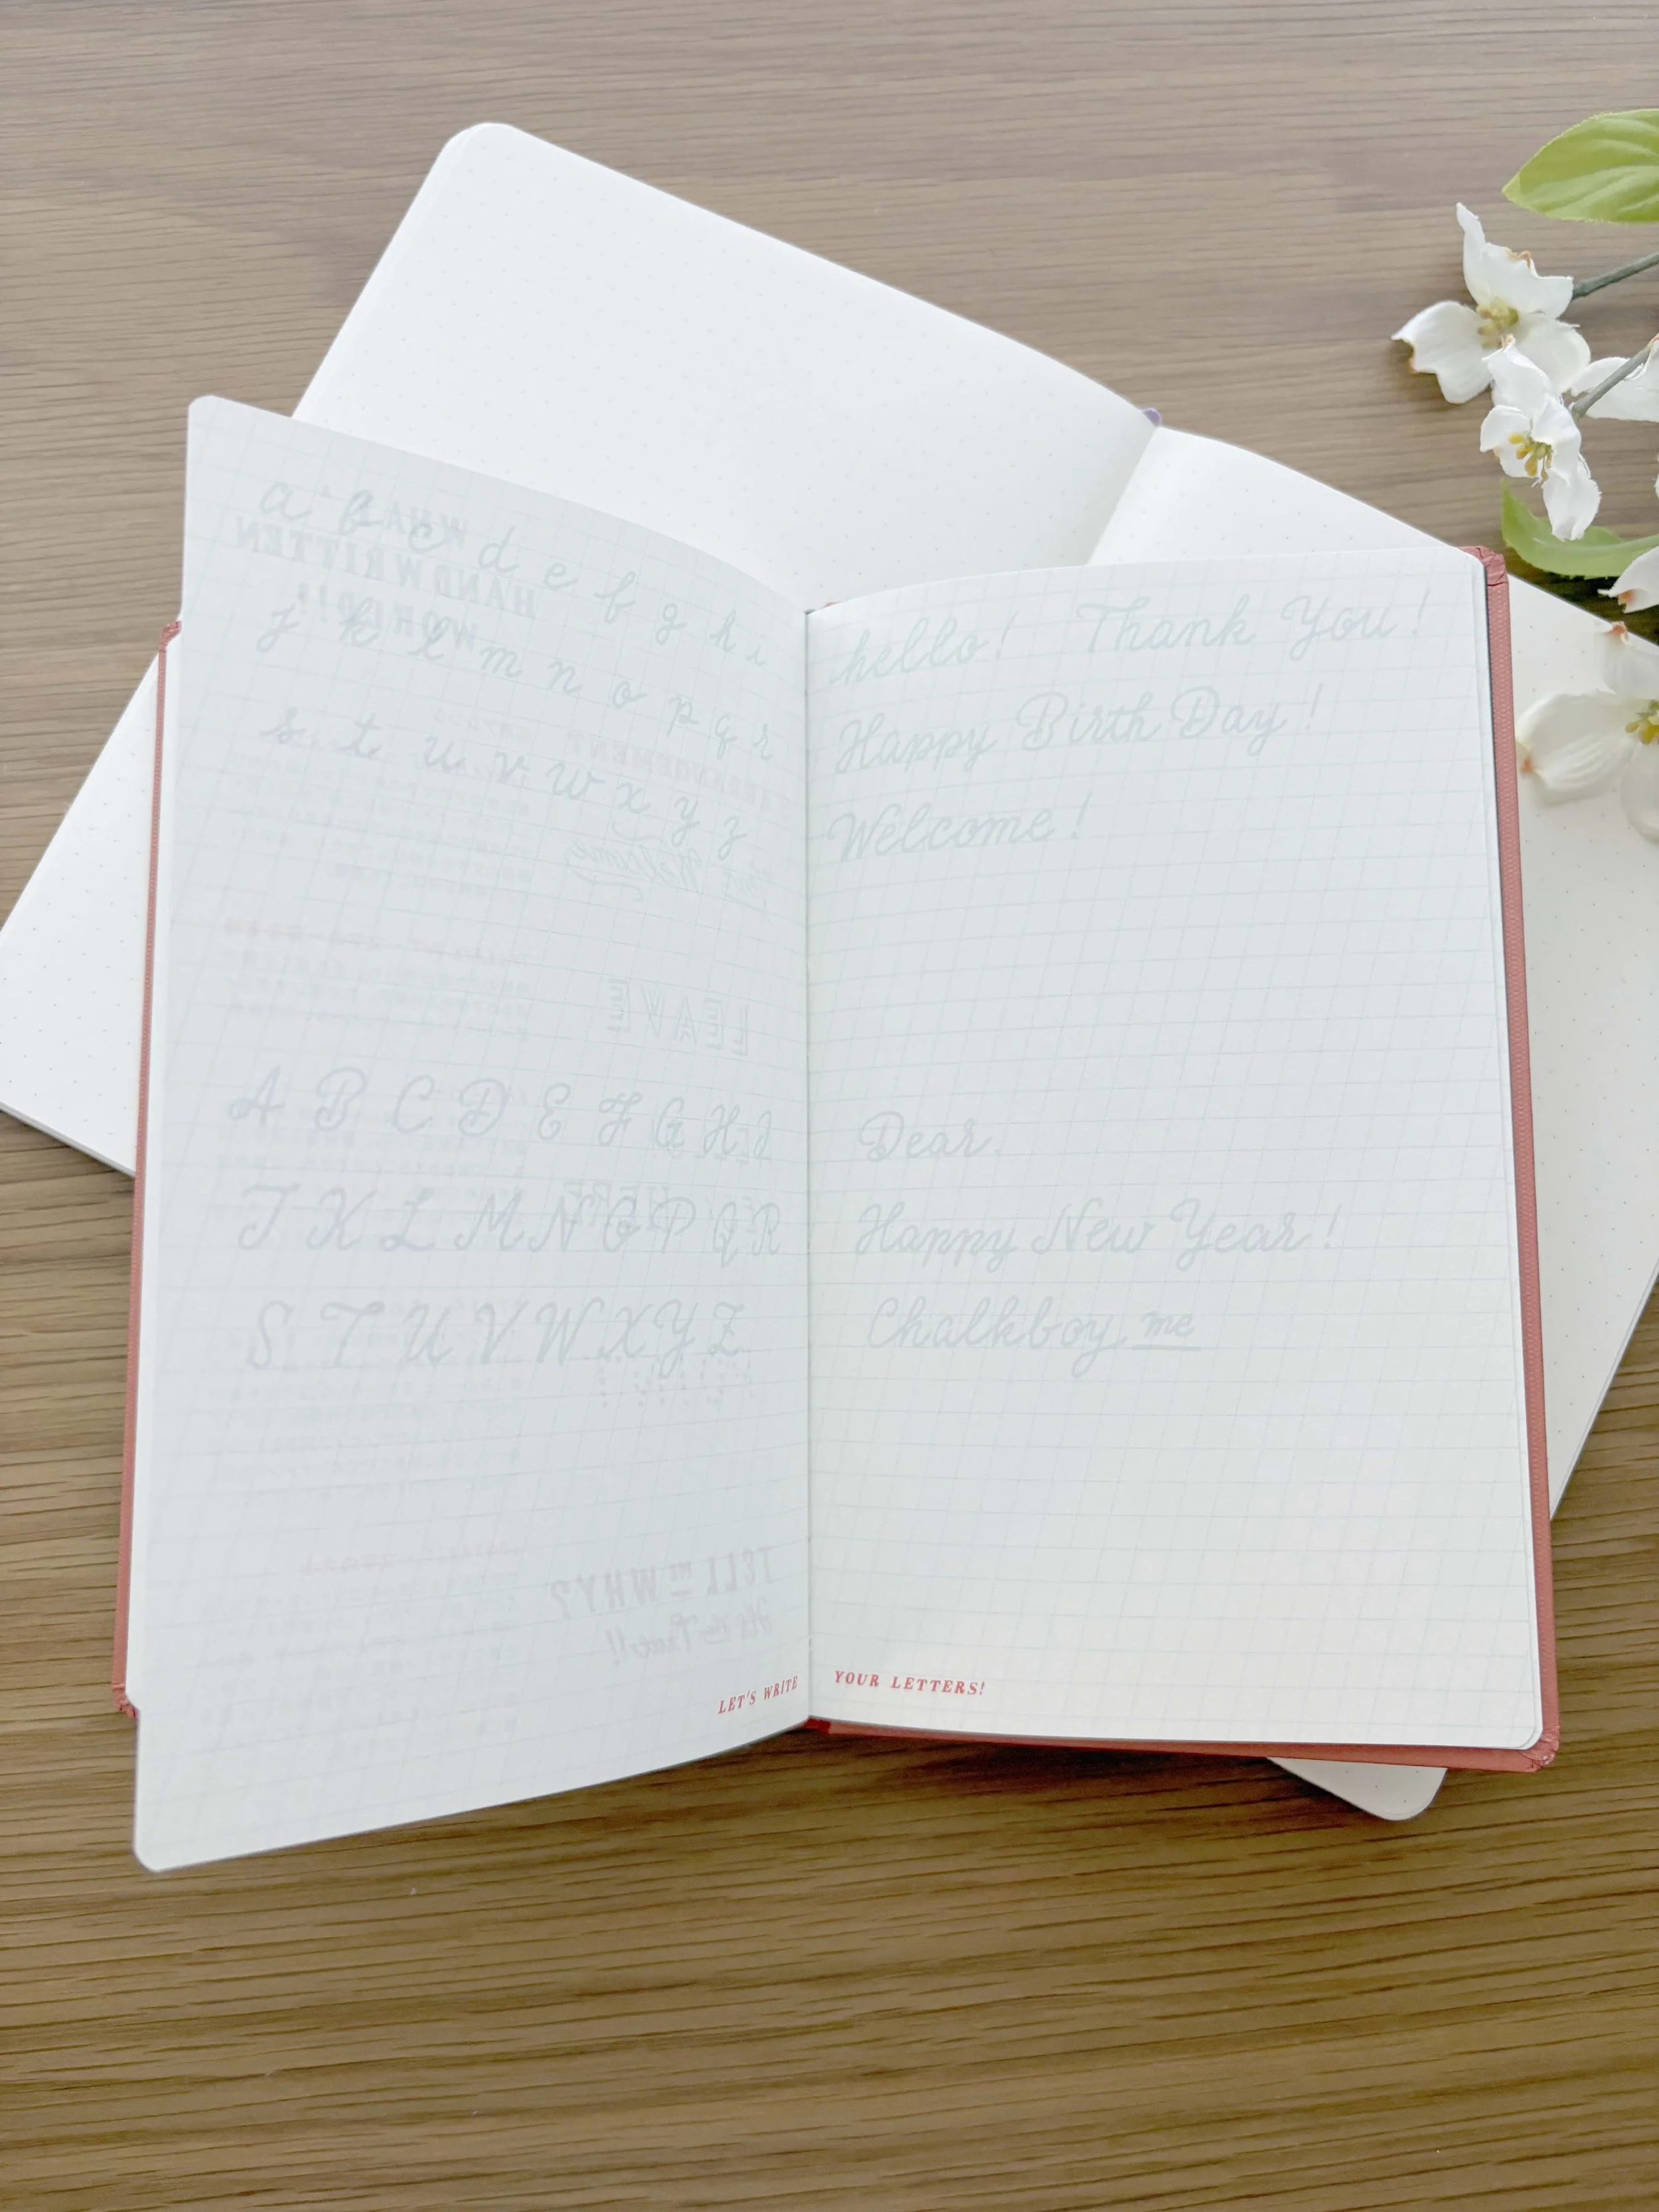 a b c d e f g h i
j k l m n o p q r
s t u v w x y z
A B C D E F G H I
J K L M N O P Q R
S T U V W X Y Z
LET'S WRITE
hello! Thank You!
Happy Birth Day!
Welcome!
Dear.
Happy New Year!
Chalkboy me
YOUR LETTERS!